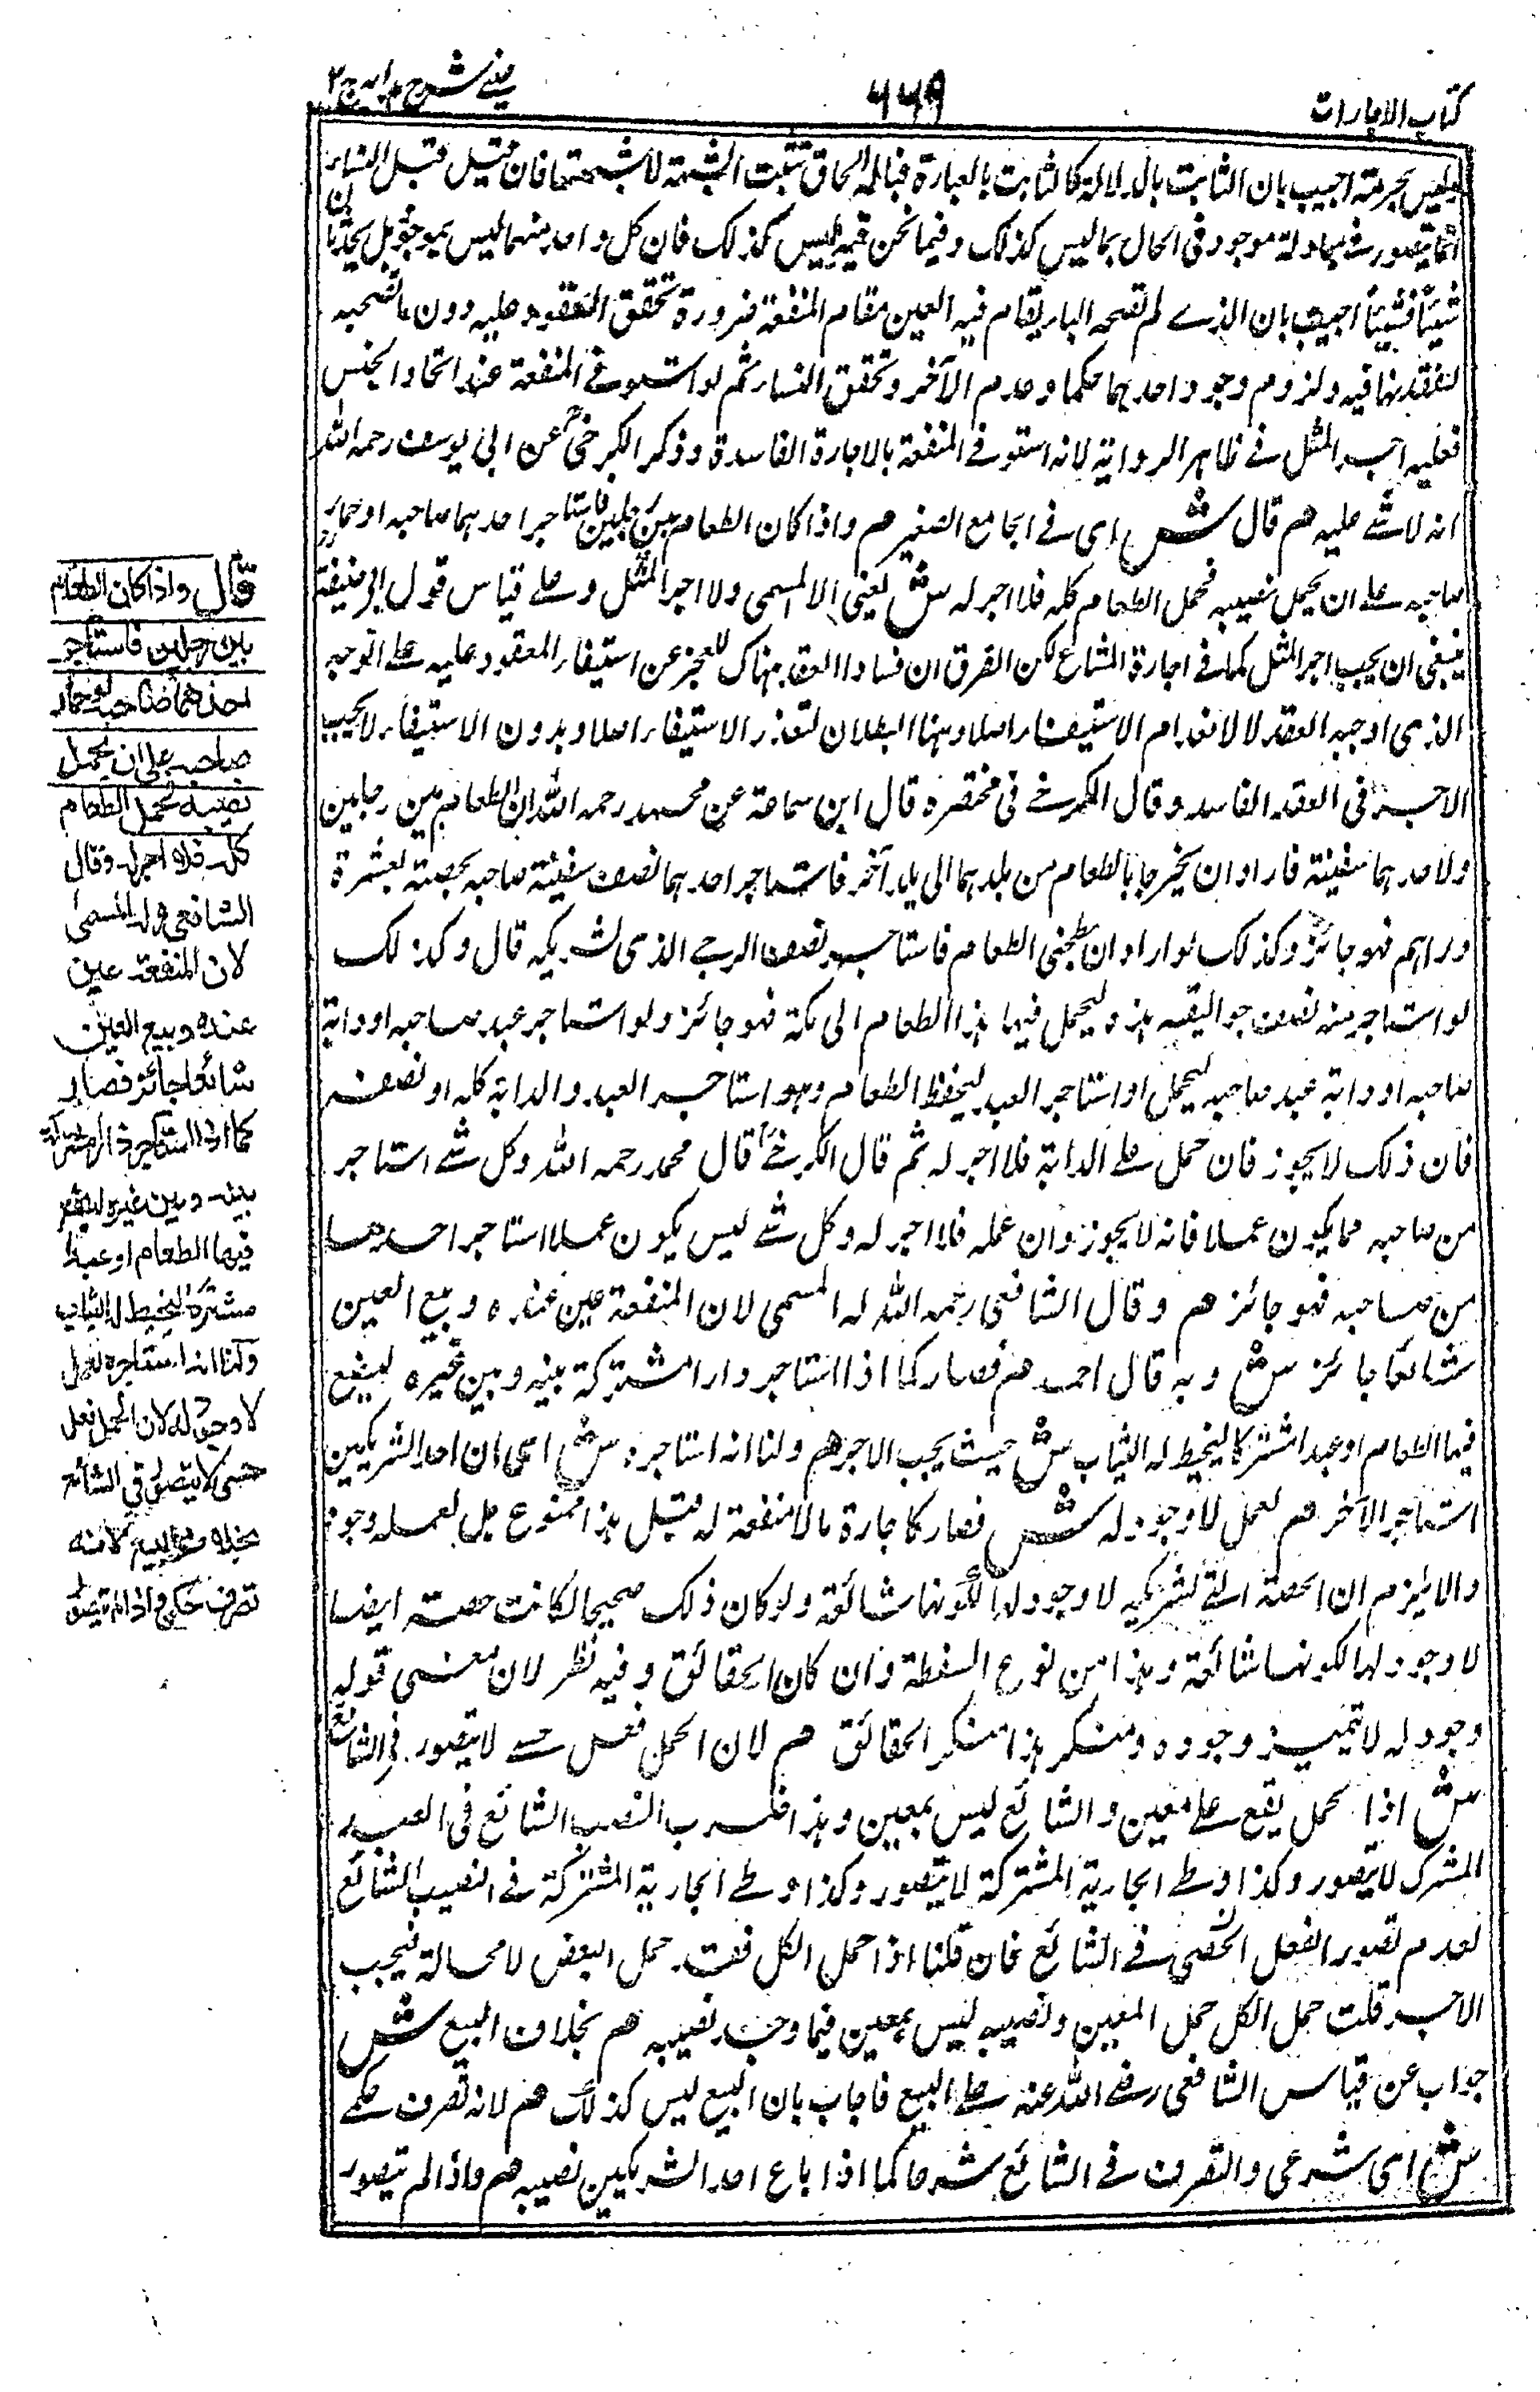 كتاب الاجارات
٦٦٩
عيني شرح هدايه ج ٣
وليس بحرمته اجيب بان الثابت بالدلالة كالثابت بالعبارة فبالالحاق تثبت الشبهة لا شبهتها فان قيل قبل النساء
انما يتصور في مبادلة موجود في الحال بما ليس كذلك وفيما نحن فيه ليس كذلك فان كل واحد منهما ليس بموجود بل يحدثان
شيئا فشيئا اجيب بان الذي لم تصحبه الباء يقام فيه العين مقام المنفعة ضرورة تحقق المعقود عليه دون ما تصحبه
لفقدنها فيه ولزوم وجود احدهما حكما وعدم الآخر وتحقق النساء ثم لو استوفى المنفعة عند اتحاد الجنس
فعليه اجر المثل في ظاهر الرواية لانه استوفى المنفعة بالاجارة الفاسدة وذكر الكرخي عن ابي يوسف رحمه الله
انه لا شيء عليه هم قال ش اى في الجامع الصغير هم واذا كان الطعام بين رجلين فاستاجر احدهما صاحبه او حمار
صاحبه على ان يحمل نصيبه فحمل الطعام كله فلا اجر له ش يعني لا المسمى ولا اجر المثل وعلى قياس قول ابى حنيفة
ينبغي ان يجب اجر المثل كما في اجارة المشاع لكن الفرق ان فساد العقد هناك للعجز عن استيفاء المعقود عليه على الوجه
الذى اوجبه العقد لا لانعدام الاستيفاء اصلا وهنا البطلان لتعذر الاستيفاء اصلا وبدون الاستيفاء لا يجب
الاجر فى العقد الفاسد وقال الكرخي فى مختصره قال ابن سماعة عن محمد رحمه الله ان الطعام بين رجلين
ولاحدهما سفينة فارادا ان يخرجا بالطعام من بلدهما الى بلد آخر فاستاجر احدهما نصف سفينة صاحبه بحصته بعشرة
دراهم فهو جائز وكذلك لو ارادا ان يطحنا الطعام فاستاجر نصف الرحى الذى لشريكه قال وكذلك
لو استاجر منه نصف جواليقه هذه ليحمل فيها هذا الطعام الى مكة فهو جائز ولو استاجر عبد صاحبه او دابة
صاحبه او دابة عبد صاحبه ليحمل او استاجر العبد ليحفظ الطعام وهو استاجر العبد والدابة كله او نصفه
فان ذلك لا يجوز فان حمل على الدابة فلا اجر له ثم قال الكرخي قال محمد رحمه الله وكل شيء استاجر
من صاحبه مما يكون عملا فانه لا يجوز وان عمله فلا اجر له وكل شيء ليس يكون عملا استاجر احدهما
من صاحبه فهو جائز هم وقال الشافعى رحمه الله له المسمى لان المنفعة عين عنده وبيع العين
شائعا جائز ش وبه قال احمد هم فصار كما اذا استاجر دارا مشتركة بينه وبين غيره ليضع
فيها الطعام او عبدا مشتركا ليخيط له الثياب ش حيث يجب الاجر هم ولنا انه استاجره ش اى ان احد الشريكين
استاجر الآخر هم لعمل لا وجود له ش فصار كاجارة ما لا منفعة له قيل هذا ممنوع بل لعمله وجود
والا يلزم ان الحصة التي لشريكه لا وجود لها لكونها شائعة ولو كان ذلك صحيحا لكانت حصته ايضا
لا وجود لها لكونها شائعة وهذا من نوع السفسطة وان كان الحقائق وفيه نظر لان معنى قوله
وجود له لا تميز وجوده ومنكر هذا منكر الحقائق هم لان الحمل فعل حسي لا يتصور في الشائع
ش اذا الحمل يقع على معين والشائع ليس بمعين وهذا ضرب النصيب الشائع في العبد
المشترك لا يتصور وكذا وطي الجارية المشتركة لا يتصور وكذا وطي الجارية المشتركة في النصيب الشائع
لعدم تصور الفعل الحسي في الشائع فان قلنا اذا حمل الكل فقد حمل البعض لا محالة فيجب
الاجر قلت حمل الكل حمل المعين ونصيبه ليس بمعين فيما وجب نصيبه هم بخلاف البيع ش
جواب عن قياس الشافعى رضي الله عنه على البيع فاجاب بان البيع ليس كذلك هم لانه تصرف حكمي
ش اى شرعى والتصرف في الشائع شرعا كما اذا باع احد الشريكين نصيبه هم واذا لم يتصور
قال واذا كان الطعام
بين رجلين فاستاجر
احدهما صاحبه او حمار
صاحبه على ان يحمل
نصيبه فحمل الطعام
كله فلا اجر له وقال
الشافعى له المسمى
لان المنفعة عين
عنده وبيع العين
شائعا جائز فصار
كما اذا استاجر دارا مشتركة
بينه وبين غيره ليضع
فيها الطعام او عبدا
مشتركا ليخيط له الثياب
ولنا انه استاجره لعمل
لا وجود له لان الحمل فعل
حسى لا يتصور في الشائع
بخلاف البيع لانه
تصرف حكمى واذا لم يتصور